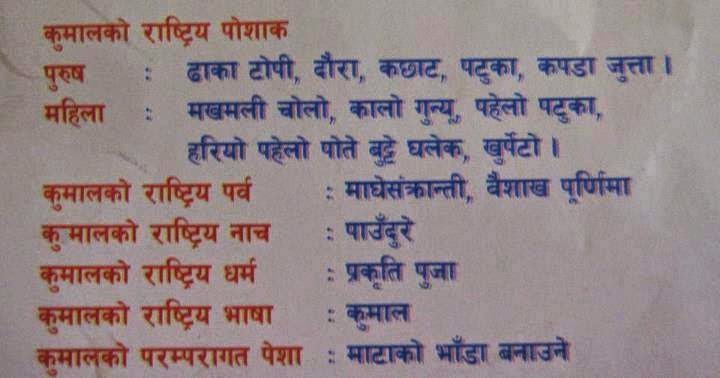 कुमालको राष्ट्रिय पोशाक
पुरुष : ढाका टोपी, दौरा, कछाट, पटुका, कपडा जुत्ता ।
महिला : मखमली चोलो, कालो गुन्यू, पहेलो पटुका,
हरियो पहेलो पोते बुट्टे घलेक, खुर्पेटो ।
कुमालको राष्ट्रिय पर्व : माघेसंक्रान्ती, वैशाख पूर्णिमा
कुमालको राष्ट्रिय नाच : पाउँदुरे
कुमालको राष्ट्रिय धर्म : प्रकृति पुजा
कुमालको राष्ट्रिय भाषा : कुमाल
कुमालको परम्परागत पेशा : माटाको भाँडा बनाउने